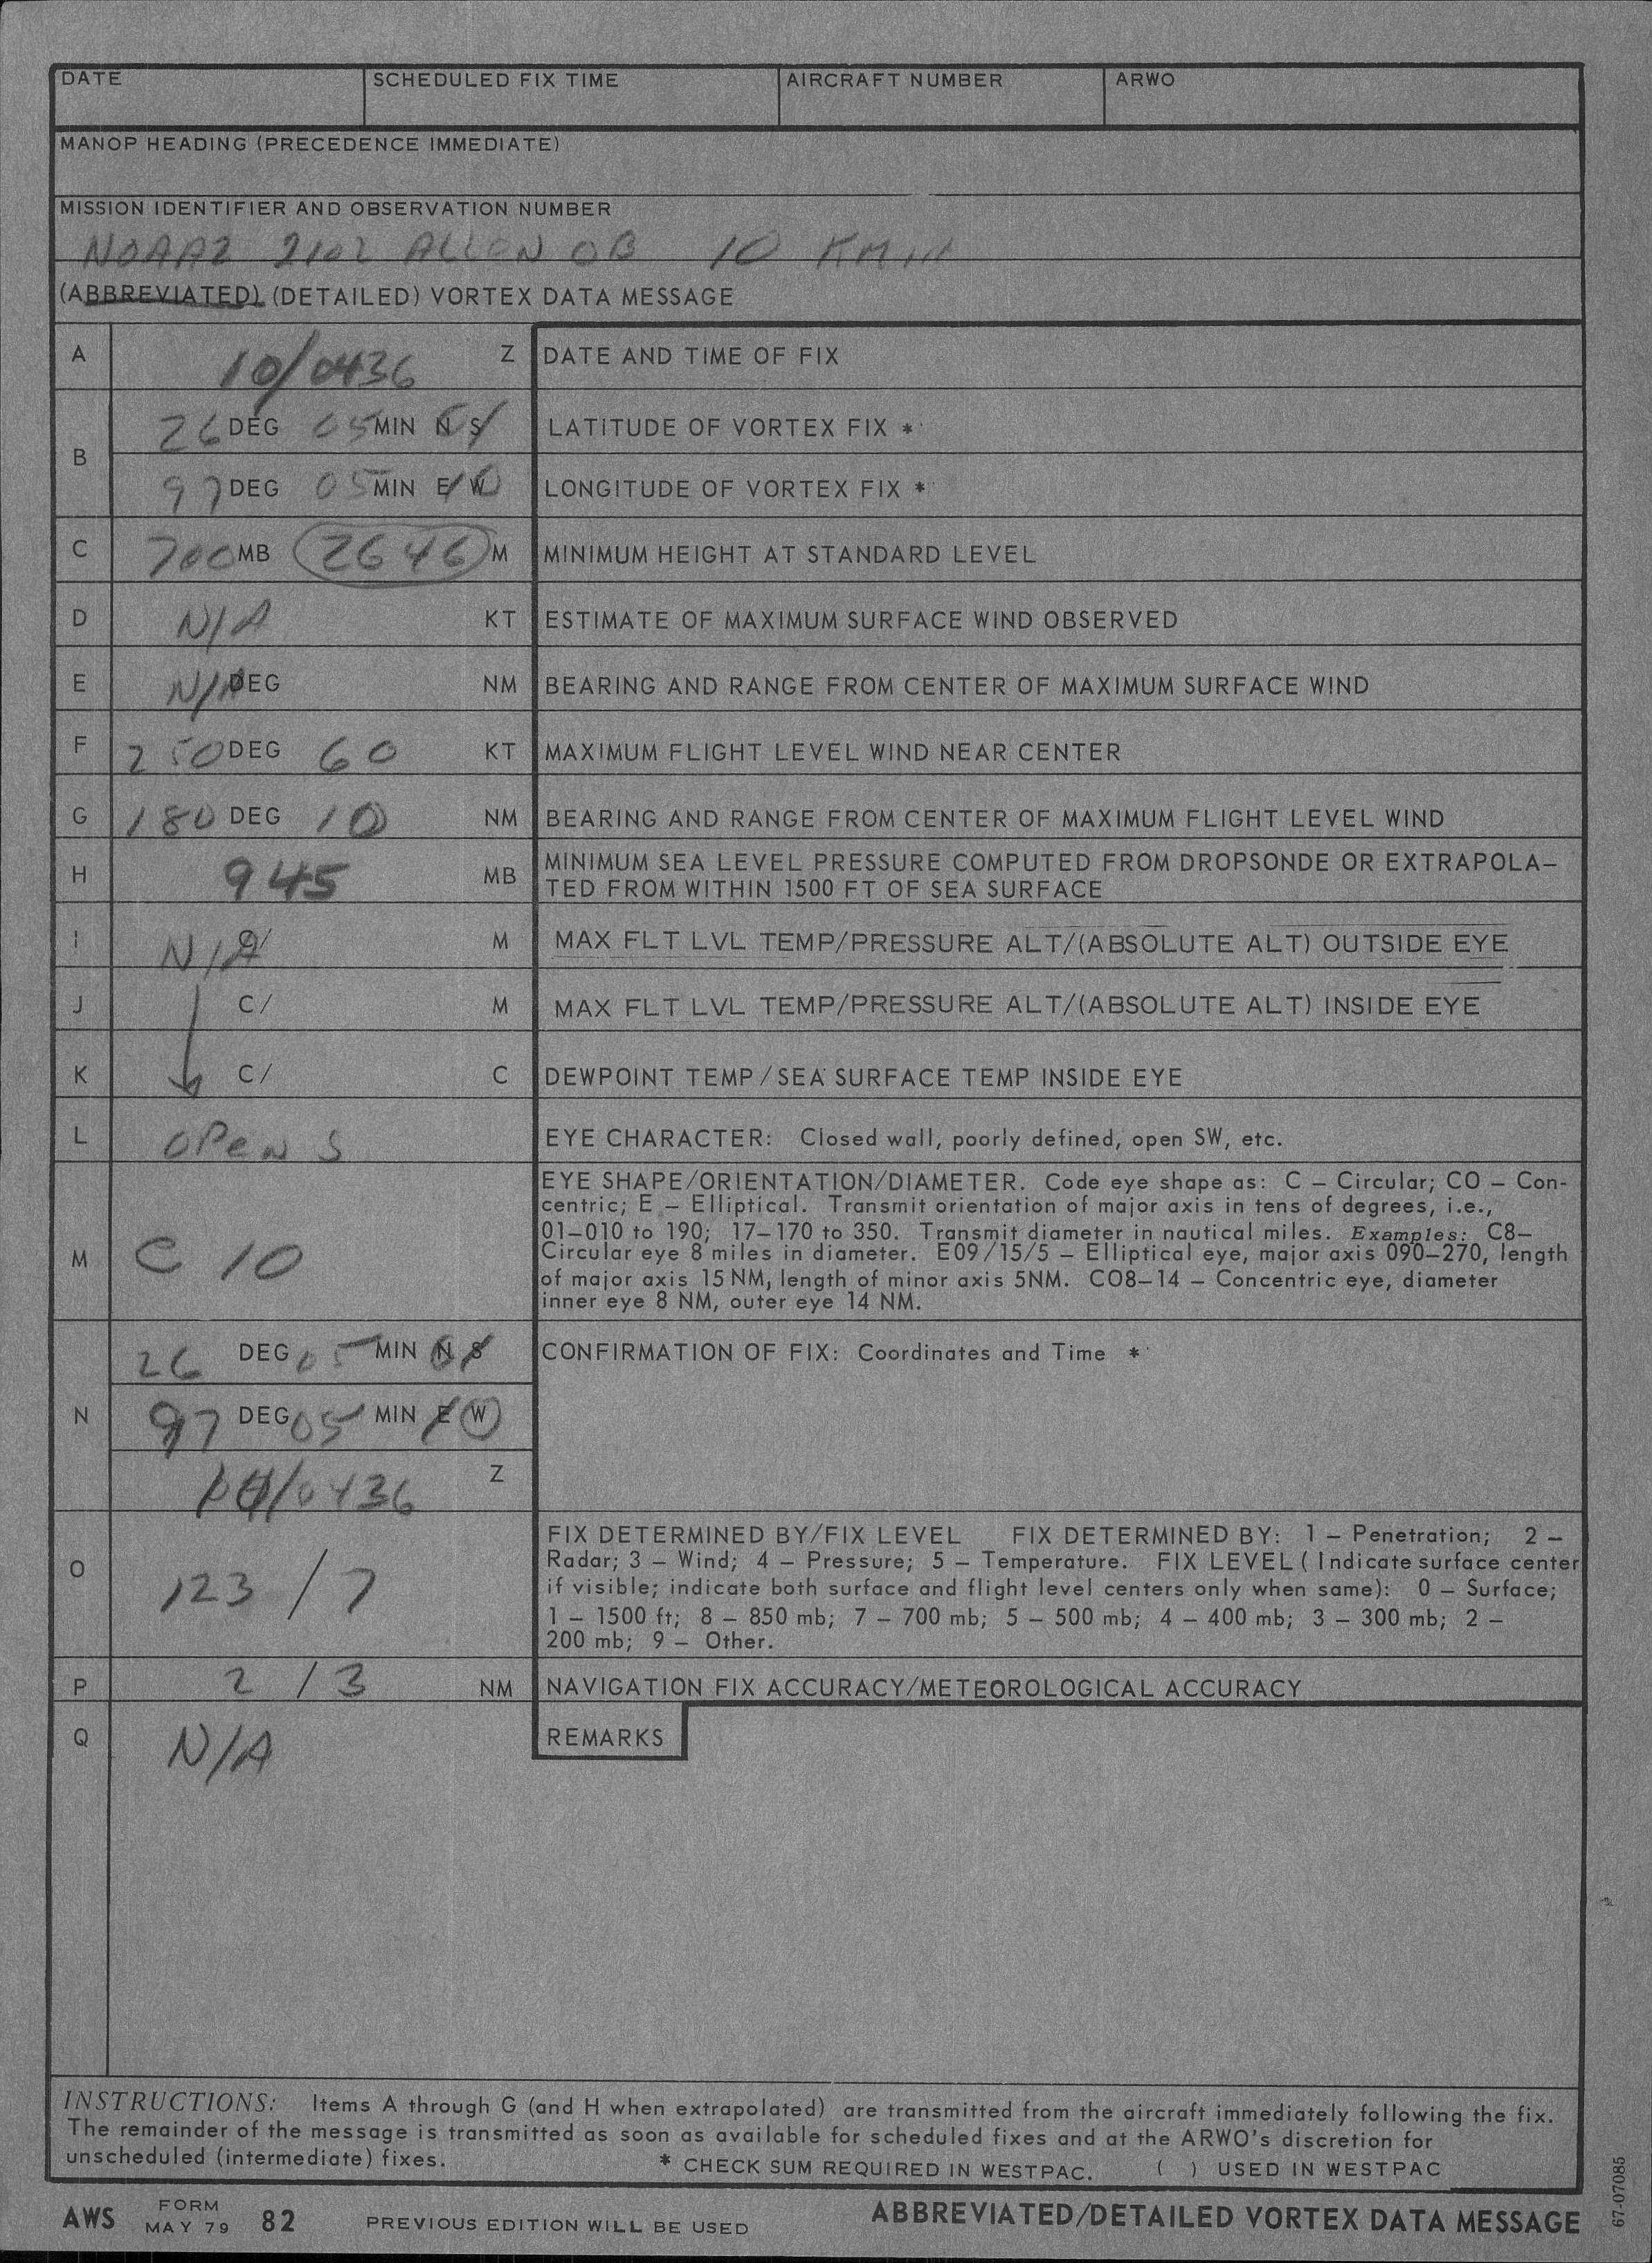 DATE SCHEDULED FIX TIME AIRCRAFT NUMBER ARWO
MANOP HEADING (PRECEDENCE IMMEDIATE)
MISSION IDENTIFIER AND OBSERVATION NUMBER
NOAA2 2102 ALLEN OB 10
(ABBREVIATED) (DETAILED) VORTEX DATA MESSAGE
A 10/0436 Z DATE AND TIME OF FIX
B 26 DEG 05 MIN N S LATITUDE OF VORTEX FIX *
97 DEG 05 MIN E W LONGITUDE OF VORTEX FIX *
C 700 MB 2646 M MINIMUM HEIGHT AT STANDARD LEVEL
D N/A KT ESTIMATE OF MAXIMUM SURFACE WIND OBSERVED
E N/A DEG NM BEARING AND RANGE FROM CENTER OF MAXIMUM SURFACE WIND
F 250 DEG 60 KT MAXIMUM FLIGHT LEVEL WIND NEAR CENTER
G 180 DEG 10 NM BEARING AND RANGE FROM CENTER OF MAXIMUM FLIGHT LEVEL WIND
H 945 MB MINIMUM SEA LEVEL PRESSURE COMPUTED FROM DROPSONDE OR EXTRAPOLA–
TED FROM WITHIN 1500 FT OF SEA SURFACE
I N/A M MAX FLT LVL TEMP/PRESSURE ALT/(ABSOLUTE ALT) OUTSIDE EYE
J C/ M MAX FLT LVL TEMP/PRESSURE ALT/(ABSOLUTE ALT) INSIDE EYE
K C/ C DEWPOINT TEMP/SEA SURFACE TEMP INSIDE EYE
L OPEN S EYE CHARACTER: Closed wall, poorly defined, open SW, etc.
M C 10 EYE SHAPE/ORIENTATION/DIAMETER. Code eye shape as: C – Circular; CO – Con-
centric; E – Elliptical. Transmit orientation of major axis in tens of degrees, i.e.,
01–010 to 190; 17–170 to 350. Transmit diameter in nautical miles. Examples: C8–
Circular eye 8 miles in diameter. E09/15/5 – Elliptical eye, major axis 090–270, length
of major axis 15 NM, length of minor axis 5NM. CO8–14 – Concentric eye, diameter
inner eye 8 NM, outer eye 14 NM.
N 26 DEG 05 MIN N S CONFIRMATION OF FIX: Coordinates and Time *
97 DEG 05 MIN E W
10/0436 Z
O 123 / 7 FIX DETERMINED BY/FIX LEVEL FIX DETERMINED BY: 1 – Penetration; 2 –
Radar; 3 – Wind; 4 – Pressure; 5 – Temperature. FIX LEVEL (Indicate surface center
if visible; indicate both surface and flight level centers only when same): 0 – Surface;
1 – 1500 ft; 8 – 850 mb; 7 – 700 mb; 5 – 500 mb; 4 – 400 mb; 3 – 300 mb; 2 –
200 mb; 9 – Other.
P 2 / 3 NM NAVIGATION FIX ACCURACY/METEOROLOGICAL ACCURACY
Q N/A REMARKS
INSTRUCTIONS: Items A through G (and H when extrapolated) are transmitted from the aircraft immediately following the fix.
The remainder of the message is transmitted as soon as available for scheduled fixes and at the ARWO's discretion for
unscheduled (intermediate) fixes. * CHECK SUM REQUIRED IN WESTPAC. ( ) USED IN WESTPAC
AWS FORM MAY 79 82 PREVIOUS EDITION WILL BE USED ABBREVIATED/DETAILED VORTEX DATA MESSAGE
67-07085